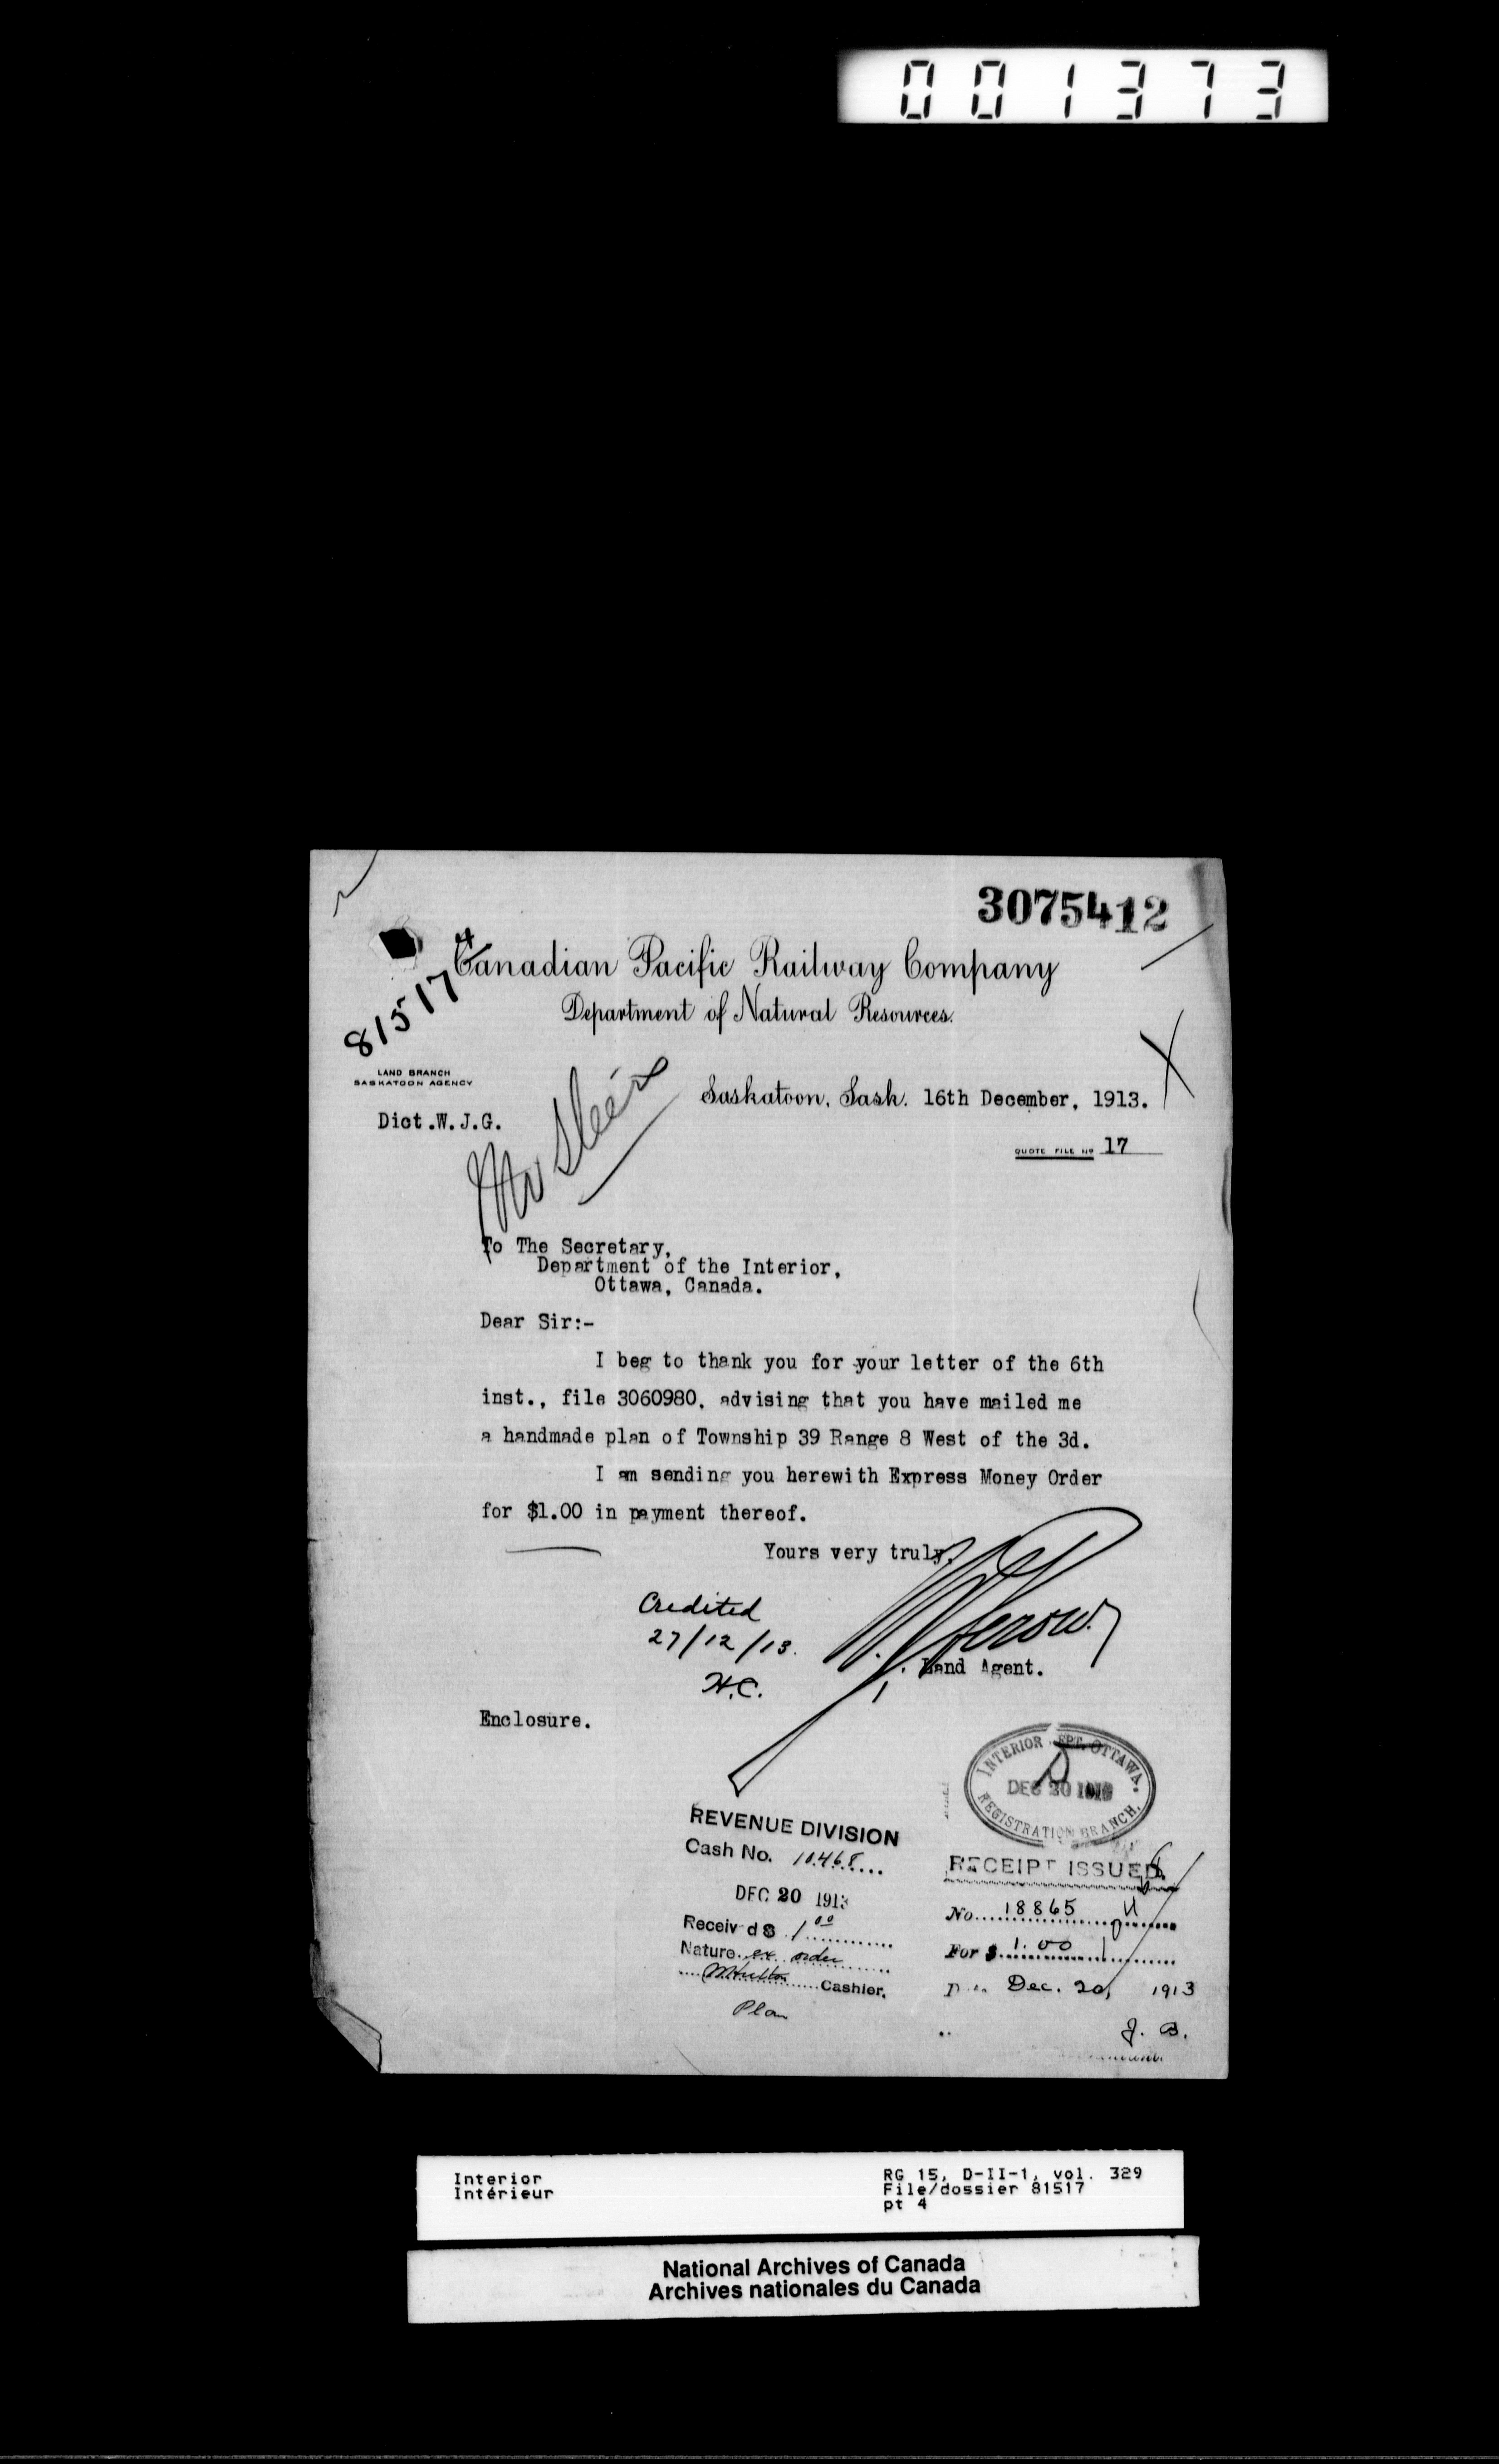 001373
3075412
81517
Canadian Pacific Railway Company
Department of Natural Resources.
LAND BRANCH
SASKATOON AGENCY
Saskatoon, Sask. 16th December, 1913.
Dict.W.J.G.
QUOTE FILE Nº 17
To The Secretary,
Department of the Interior,
Ottawa, Canada.
Dear Sir:-
I beg to thank you for your letter of the 6th
inst., file 3060980, advising that you have mailed me
a handmade plan of Township 39 Range 8 West of the 3d.
I am sending you herewith Express Money Order
for $1.00 in payment thereof.
Yours very truly,
Credited
27/12/13.
H.C.
Land Agent.
Enclosure.
INTERIOR EPT. OTTAWA.
DEC 20 1913
REGISTRATION BRANCH.
REVENUE DIVISION
Cash No. 10468
DEC 20 1913
Receiv d $ 1 00
Nature ex order
Cashier.
Plan
RECEIPT ISSUED
No. 18865
For $ 1.00
Dec. 20, 1913
J. B.
Interior
Intérieur
RG 15, D-II-1, vol. 329
File/dossier 81517
pt 4
National Archives of Canada
Archives nationales du Canada